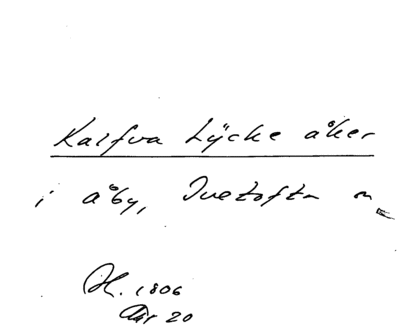 Kalfva Lycke åker
i åby, Ivetofta sn
1806
20